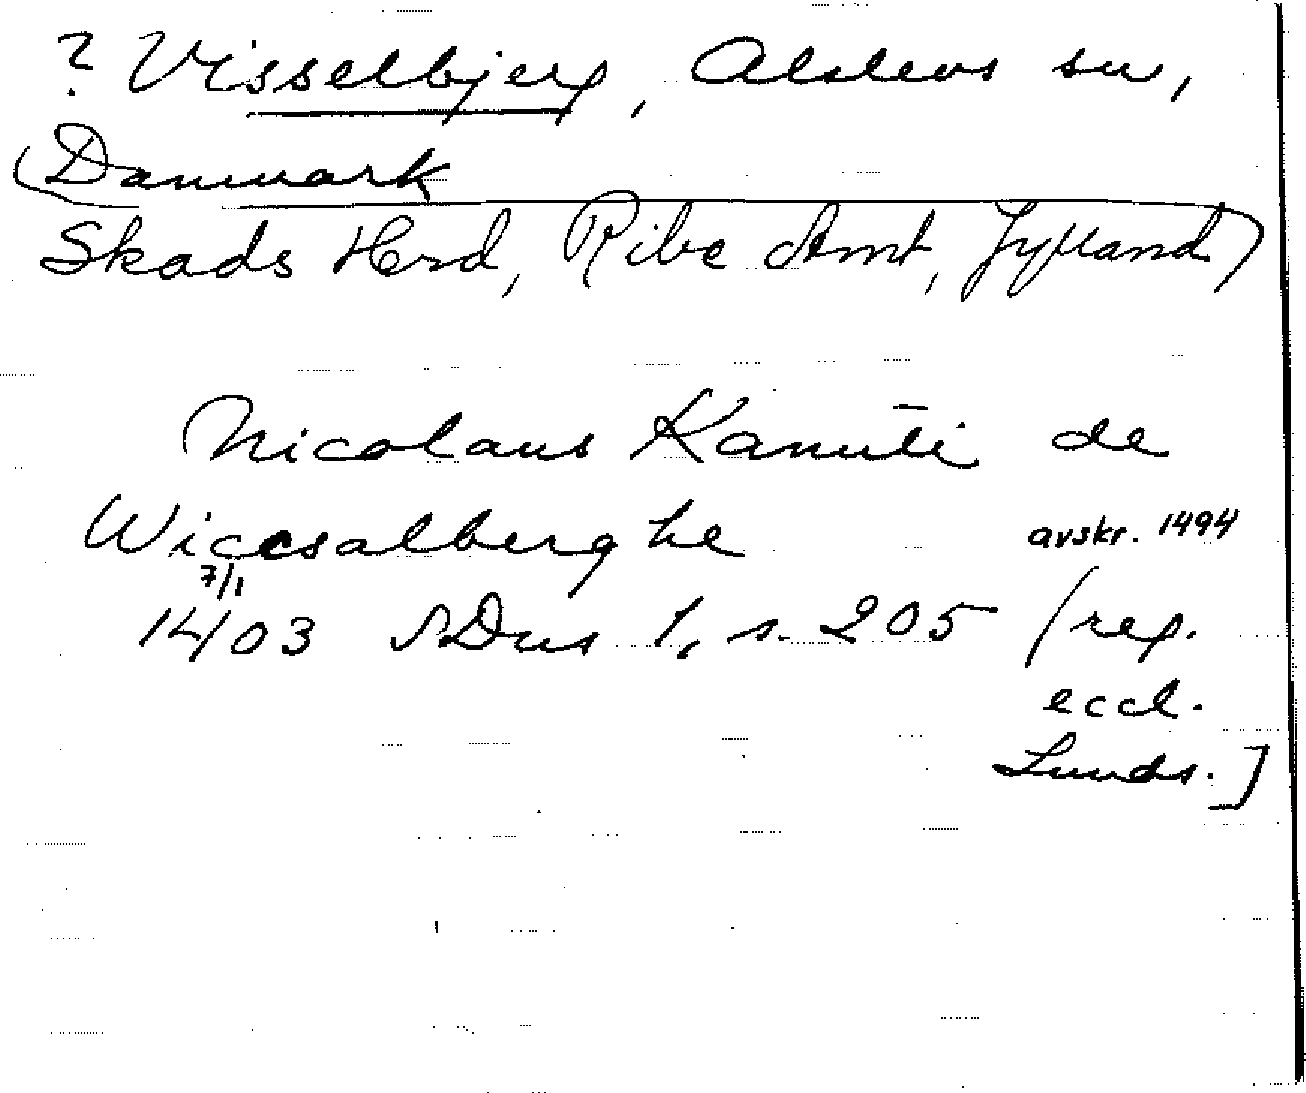 ? Visselbjerg, Alslevs sn,
(Danmark
Skads Herd, Ribe Amt, Jylland)
Nicolaus Kanuti de
Wiccsalberghe avskr. 1494
7/1
1403 SDns 1, s. 205 (reg.
eccl.
Lunds.]